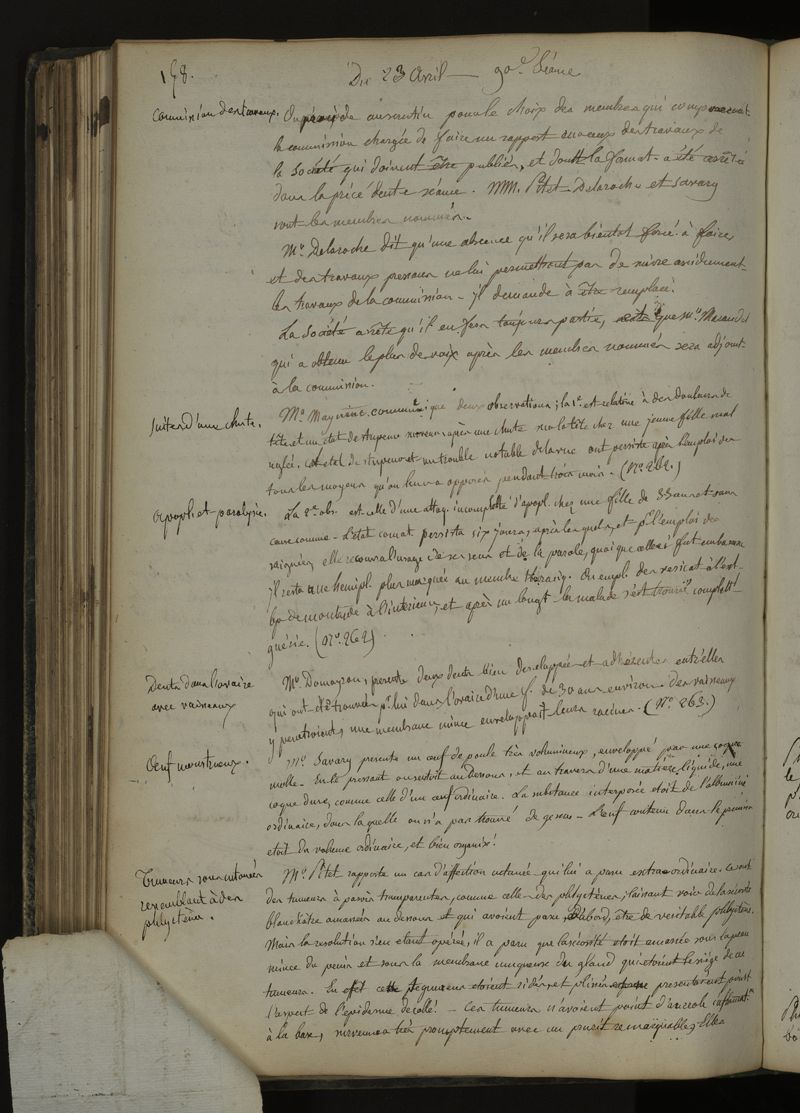 158.
Du 23 Avril — 90e. Séance
Commission des travaux. On procède au scrutin pour le choix des membres qui composeront
la commission chargée de faire un rapport sur ceux des travaux de
la Société qui doivent être publiés, et dont la format. a été arrêtée
dans la précédente séance. MM. Petet Delaroche et Savary
sont les membres nommés.
Mr. Delaroche dit qu'une absence qu'il sera bientôt forcé à faire,
et des travaux pressans ne lui permettront pas de suivre assidument
les travaux de la commission - il demande à être remplacé.
La Société arrête qu'il en fera toujours partie, que Mr.
qui a obtenu le plus de voix après les membres nommés sera adjoint
à la commission.
Suites d'une chute. Mr. communique deux observations; la 1e. est relative à des douleurs de
tête et un état de stupeur survenus après une chute sur la tête chez une jeune fille mal
réglée. Cet état de stupeur et un trouble notable de la vue ont persisté après l'emploi de
tous les moyens qu'on leur a opposés pendant trois mois. (No. 262.)
Apopl. et paralysie. La 2e. obs. est celle d'une attaq. incomplette d'apopl. chez une fille de 33 ans et sans
cause connue - L'état comat persista six jours, après lesquels, et pr. l'emploi des
saignées, elle recouvra l'usage de ses sens et de la parole, quoique celle-ci fut embarrassée
il resta une hémipl. plus marquée au membre thoraciq. On empl. des vesicat. à l'ext.
 à l'intérieur, et après un longt. la malade s'est trouvée complett.
guérie. (No. 262)
Dents dans l'ovaire
avec vaisseaux
Mr. présente deux dents bien développées et adhérentes entr'elles
qui ont été trouvées pr. lui dans l'ovaire d'une f. de 30 ans environ. des vaisseaux
y penetroient; une membrane mince enveloppait leurs racines. (No. 263.)
Oeuf monstrueux. Mr. Savary presente un œuf de poule très volumineux, enveloppé par une coque
molle. En le pressant on sentoit au dessous, et au travers d'une matière liquide, une
coque dure, comme celle d'un œuf ordinaire. La substance interposée étoit de l'albumine
ordinaire, dans laquelle on n'a pas trouvé de germe - L'œuf contenu dans le premier
étoit du volume ordinaire, et bien organisé.
Tumeurs sous cutanées
ressemblant à des
phlyctènes.
Mr. Petet rapporte un cas d'affection cutanée qui lui a paru extraordinaire. Ce sont
des tumeurs à parois transparentes, comme celles des phlyctènes, laissant voir de la sérosité
blanchâtre amassée au dessous et qui avoient paru, d'abord, être de veritable phlyctène.
Mais la resolution s'en étant opérée, il a paru que la sérosité étoit amassée sous la peau
mince du penis et sous la membrane muqueuse du gland qui étoient le siège de ces
tumeurs. En effet cette peau étoient ridés et plissés presentoient point
l'aspect de l'épiderme décollé. — Ces tumeurs n'avoient point d'aureole inflammat.
à la base, survenues très promptement avec un prurit remarquable; elles